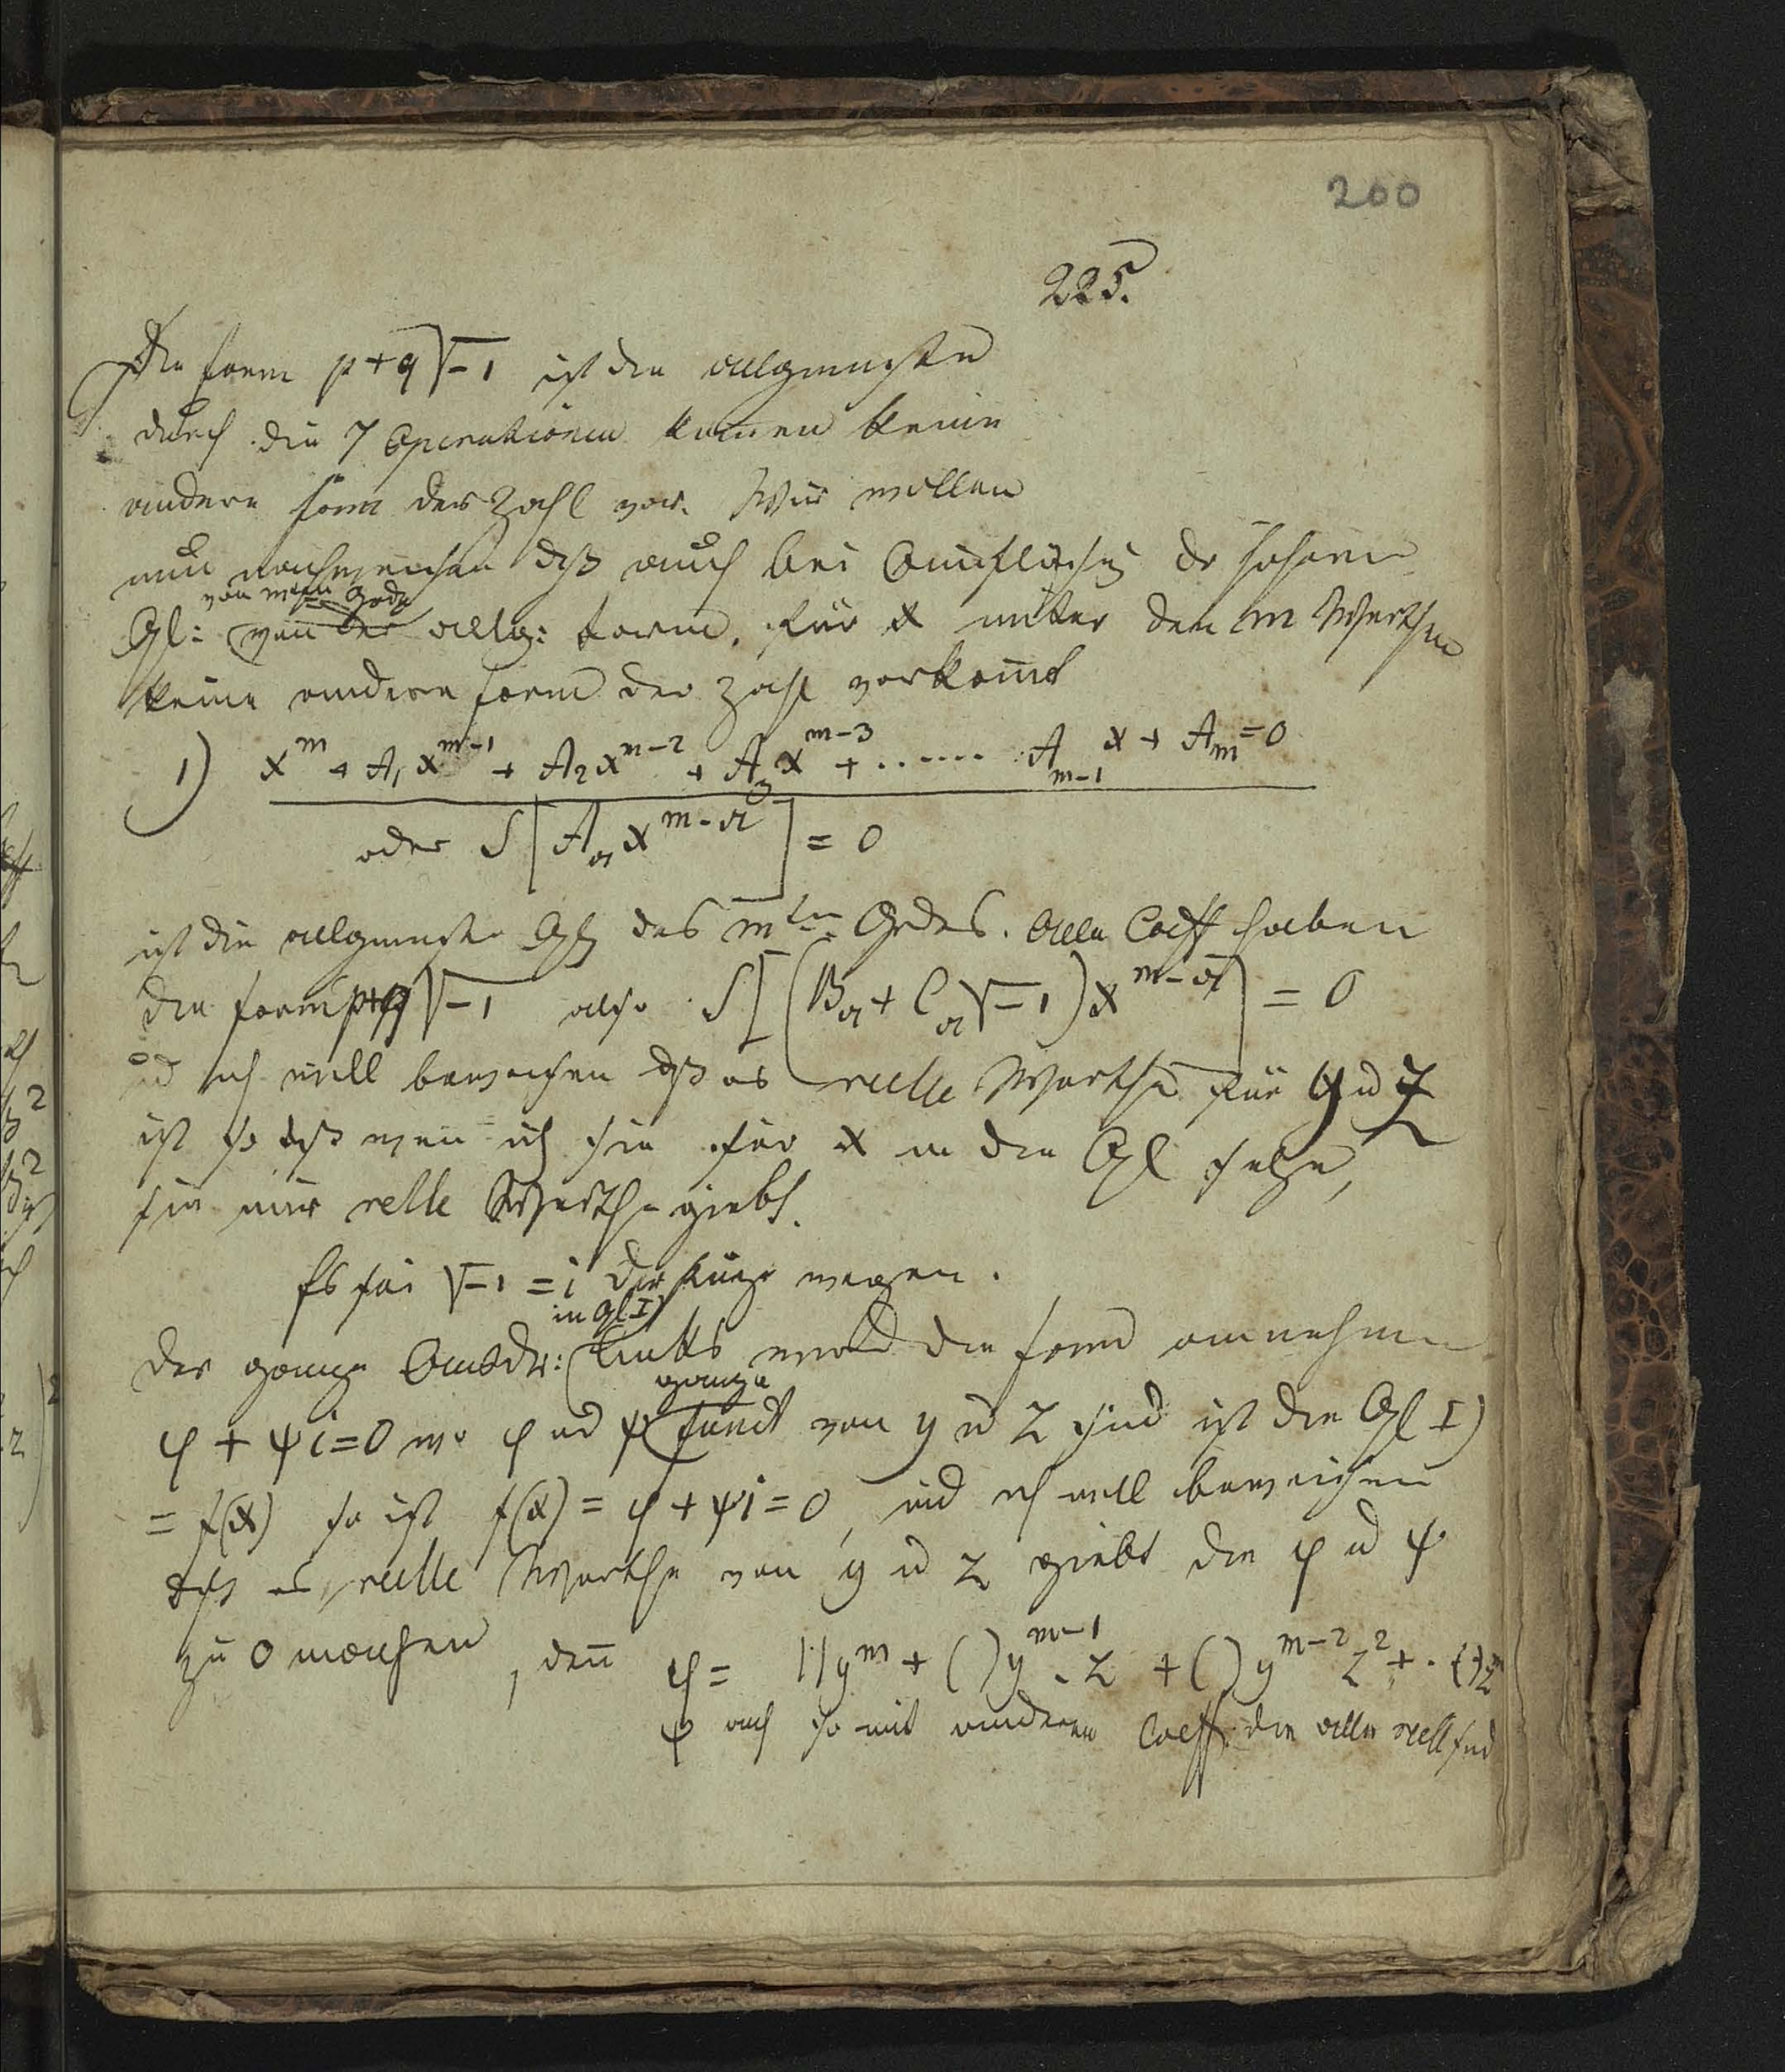 200
225.
Die Form p+q√-1 ist die allgemeinste
durch die 7 Operationen kommen keine
andere Form der Zahl vor. Wir wollen
nun nachweisen dß auch bei Auflösung der höhern
von mten Grade
Gl: von der allg: Form, für x unter den m Werthen
keine andere Form der Zahl vorkom̅t
1) x^m + A₁x^{m-1} + A₂x^{m-2} + A₃x^{m-3} + ...... A_{m-1}x + A_m = 0
oder S[A_a x^{m-a}] = 0
ist die allgemeinste Glg des mten Grdes. Alle Coeff haben
die Form p+q√-1 also S[(B_a + C_a√-1)x^{m-a}] = 0
und ich will beweisen dß es reelle Werthe für y u z
ist so dß wenn ich sie für x in die Gl setze,
sie nur relle Werthe giebt.
Es sei √-1 = i der Kürze wegen.
in Gl I)
Der ganze Ausdr: links wird die Form annehmen
ganze
φ + ψi = 0 wo φ und ψ Funct von y u z sind ist die Gl I)
= f(x) so ist f(x) = φ + ψi = 0, und ich will beweisen
dß es reelle Werthe von y u z giebt die φ u ψ
zu 0 machen, den̅ φ = ( )y^m + ( )y^{m-1}.z + ( )y^{m-2}z² + .. ( )z^m
ψ auch so mit anderen Coeff. die alle reell sind